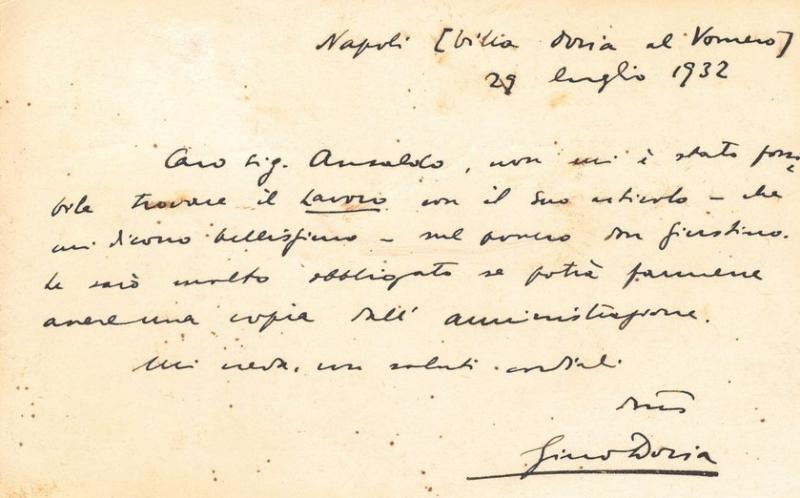 Napoli [Villa Doria al Vomero]
29 luglio 1932
Caro sig. Ansaldo, non mi è stato possi
bile trovare il Lavoro con il suo articolo – che
mi dicono bellissimo – sul povero don Giustino.
Le sarò molto obbligato se potrà farmene
avere una copia dall' amministrazione.
Mi creda, con saluti cordiali
Gino Doria